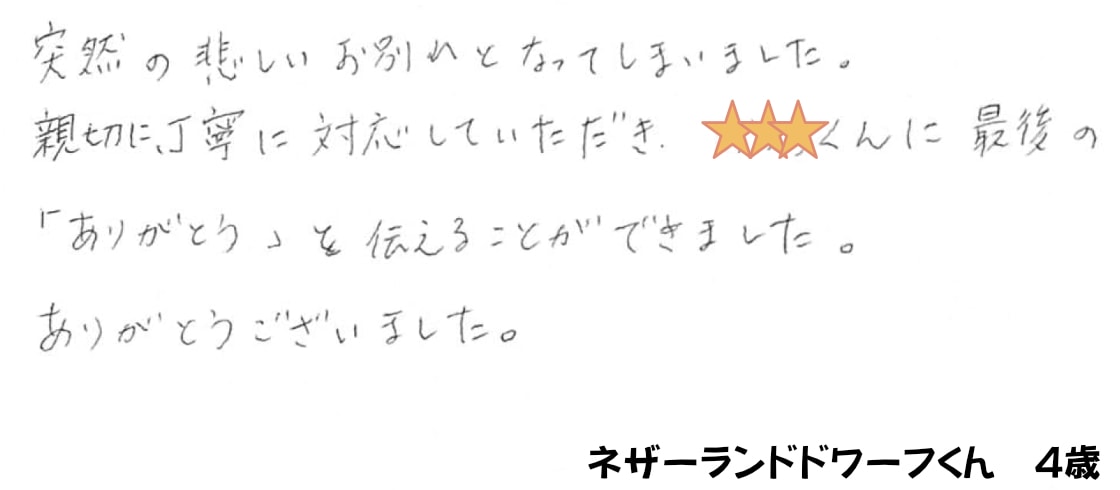 突然の悲しいお別れとなってしまいました。
親切に、丁寧に対応していただき、くんに最後の
「ありがとう」を伝えることができました。
ありがとうございました。
ネザーランドドワーフくん 4歳